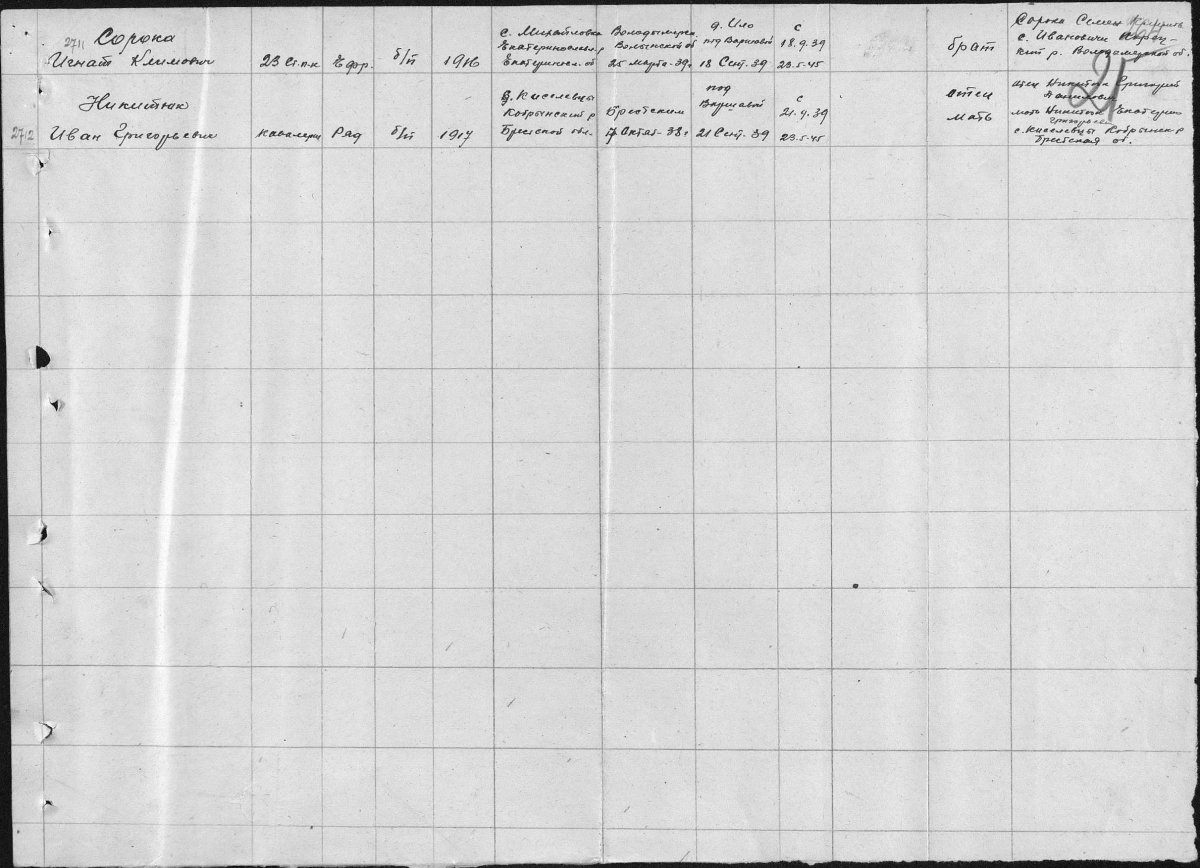 2711 Сорока
Игнат Климович
23 Ст.п.к
Ефр.
б/п
1916
с. Михайловка
Екатеринославл.р
Екатериносл. об
Волынской об
25 марта-39г
д. Ило
под Варшавой
18 Сент. 39
с
18.9.39
23.5.45
брат
Сорока Семен
с. Ивановичи
кий р. об.
21
Никитюк
2712 Иван Григорьевич
кавалери
Ряд
б/п
1917
д. Киселевцы
Кобрынский р
Брестской обл.
Брестским
17 Октяб-38г
под
Варшавой
21 Сент. 39
с
21.9.39
23.5.45
отец
мать
отец Никитюк Григорий
мать Никитюк Екатерина
с. Киселевцы Кобрынск р
Брестская об.